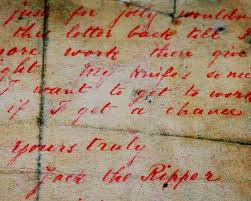 just for jolly wouldn
this letter back till I
ore work then give
ght My knifes so
I want to get to work
if I get a chance
Yours truly
Jack the Ripper